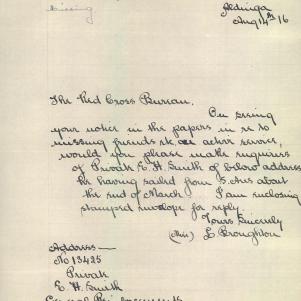 missing
Aldinga
Aug 14th 16
The Red Cross Bureau.
On seeing
your notice in the papers in re to
missing friends etc, on active service,
would you please make enquiries
of Private E. H. Smith of below address
he having sailed from S. Aus about
the end of March I am enclosing
stamped envelope for reply
Yours Sincerely
(Miss) L Broughton
Address—
No 13425
Private
E. H. Smith